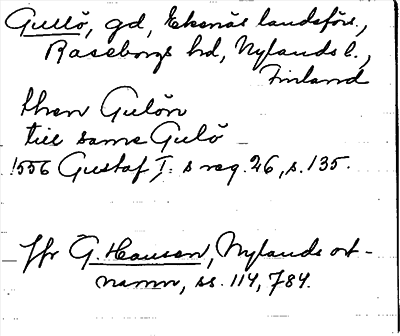 Gullö, gd, Ekenäs landsförs.,
Raseborgs hd, Nylands l.,
Finland
then Gulön
till same Gulö
1556 Gustaf I:s reg. 26, s. 135.
Jfr G. Hausen, Nylands ort-
namn, ss. 114, 784.